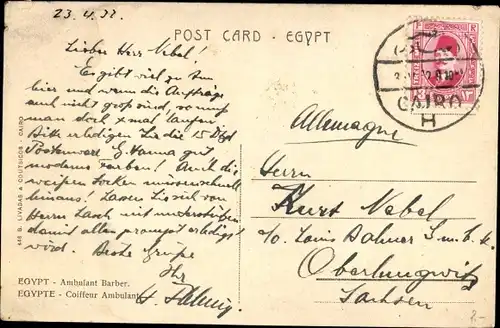 23.4.32.
POST CARD - EGYPT
Lieber Herr Nebel!
Es gibt viel zu tun
hier und wenn die Aufträge
auch nicht groß sind, so muß
man doch x mal laufen
Bitte erledigen Sie die 15
G. Hanna gut
moderne Farben! Auch die
weißen Socken
hinaus! Lassen Sie sich von
Herrn Lasch mit unterstützen
damit alles prompt erledigt
wird. Beste Grüße
Ihr
EGYPT - Ambulant Barber.
EGYPTE - Coiffeur Ambulant
B. LIVADAS & COUTSICOS - CAIRO
CAIRO
H
Allemagne
Herrn
Kurt Nebel
c/o Louis Bahner G.m.b.H.
Oberlungwitz
Sachsen